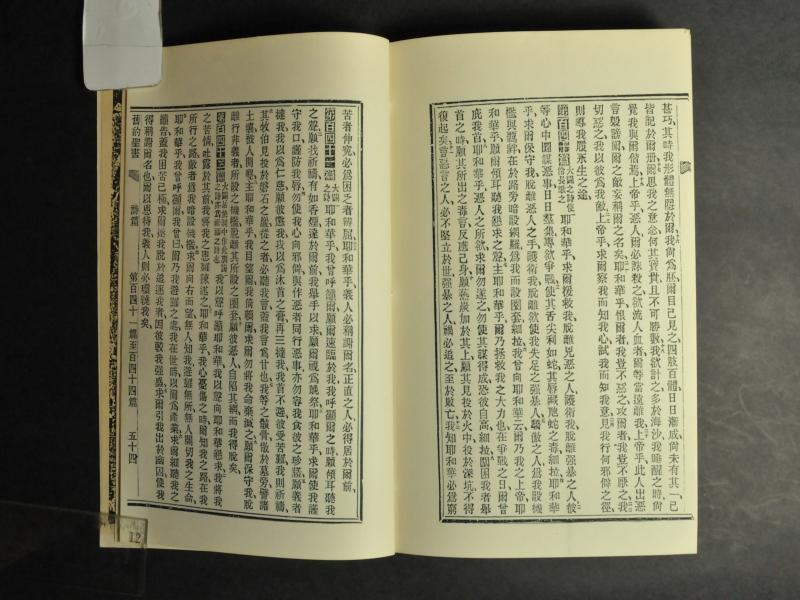 甚巧、其時我形體無隱於爾、我尚爲胚、爾目己見之、四肢百體、日日漸成、尚未有其一、己
皆記於爾册、爾思我之意念、何其寶貴、且不可勝數、我欲計之、多於海沙、我睡醒之時、尚
覺我與爾偕焉、上帝乎、惡人爾必誅殺之、欲流人血者、爾等當遠離我、上帝乎、此人出惡
言毁謗爾、爾之敵妄稱爾之名矣、耶和華乎、恨爾者、我豈不惡之、攻爾者、我豈不厭之、我
切惡之、我以彼爲我敵、上帝乎、求爾察我、而知我心、試我而知我意、見我行何邪僻之徑、
則導我履永生之途、
第百四十篇 大闢之詩使伶長歌之 耶和華乎、求爾援救我、脫離兇惡之人、護衛我、脫離強暴之人、彼
等心中圖謀惡事、日日羣集、專欲爭戰、使其舌尖利如蛇、其唇藏虺蛇之毒、細拉、耶和華
乎、求爾保守我、脫離惡人之手、護衛我、脫離欲使我失足之強暴人、驕傲之人、爲我設機
檻與繩絆、在於路旁、暗設網羅、爲我而設圈套、細拉、我曾向耶和華云、爾乃我之上帝、耶
和華乎、願爾傾耳聽我懇求之聲、主耶和華乎、爾乃拯救我之大力也、在爭戰之日、爾曾
庇我首、耶和華乎、惡人之所欲、求爾勿遂之、勿使其謀得成、恐彼自高、細拉、圍困我者舉
首之時、願其所出之毒言、反應己身、願熱炭加於其上、願其見投於火中、投於深坑、不得
復起矣、嘗惡言之人、必不堅立於世、強暴之人、禍必追之、至於敗亡、我知耶和華必爲窮
苦者伸寃、必爲困乏者辨屈、義人必稱謝爾名、正直之人必得居於爾前、
第百四十一篇 大闢之詩 耶和華乎、我曾呼籲爾、願爾速臨於我、我呼籲爾之時、願傾耳聽我
之聲、願我祈禱有如香煙、達於爾前、我舉手以求、願爾視爲晚祭、耶和華乎、求爾使我謹
守我口、嚴防我唇、勿使我心向邪僻、與作惡者同行惡事、亦勿容我食彼之珍羞、願義者
撻我、我以爲仁慈、願彼懲我、我以爲沐首之膏、再三撻我、我首不避、彼受苦難、我則祈禱、
其牧伯見投於磐石之巖、從之者必聽我言、蓋我言爲甘也、我等之骸骨、散於墓旁、譬諸
土壤被人開墾、主耶和華乎、我目望爾、我倚賴爾、求爾勿將我命棄擲之、願爾保守我、脫
離行非義者所設之機檻、脫離其所設之圈套、願彼惡人自陷其網、而我得脫矣、
第百四十二篇 我以聲呼籲耶和華、我以聲向耶和華懇求、我將我
之苦情吐露於其前、我將我之患難陳述之、耶和華乎、我心憂傷之時、爾知我之路、在我
所行之路、敵者爲我暗設機檻、求爾向右而望、無人知我、避難無所、無人關切我之生命、
耶和華乎、我曾呼籲爾、我曾曰、爾乃我避難之處、我在世時、以爾爲產業、求爾細聽我之
籲告、蓋我困苦已極、求爾拯我、脫於追逐我者、因彼較我強盛、求爾引我出於幽囚、使我
得稱謝爾名也、爾以恩待我、義人則必環繞我矣、
舊約聖書 詩篇 第百四十一篇至百四十四篇 五十四
12